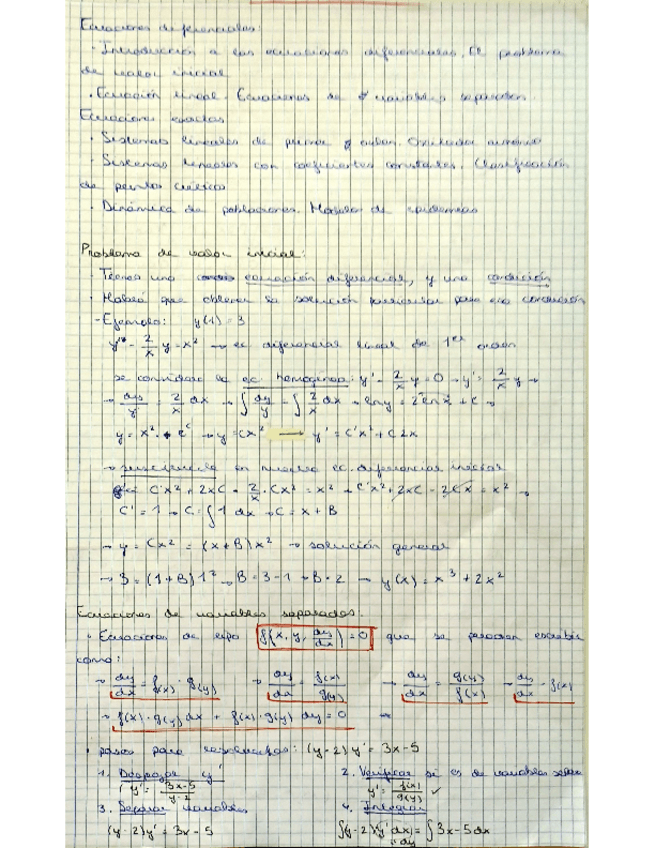 Ecuaciones diferenciales:
· Introducción a las ecuaciones diferenciales. El problema
de valor inicial
· Ecuación lineal. Ecuaciones de variables separadas
Ecuaciones exactas
· Sistemas lineales de primer orden. Oscilador armónico
· Sistemas lineales con coeficientes constantes. Clasificación
de puntos críticos
· Dinámica de poblaciones. Modelos de epidemias
Problema de valor inicial:
· Tenemos una ecuación diferencial, y una condición
· Habrá que obtener la solución particular para esa condición
- Ejemplo: y(1) = 3
y' - 2/x y = x² → ec diferencial lineal de 1er orden
se considera la ec. homogenea: y' - 2/x y = 0 → y' = 2/x y →
→ dy/y = 2/x dx → ∫ dy/y = ∫ 2/x dx → ln y = 2 ln x + C →
y = x² · e^c → y = Cx² → y' = C'x² + C2x
→ en nuestra ec. diferencial inicial
C'x² + 2xC - 2/x · Cx² = x² → C'x² + 2xC - 2Cx = x² →
C' = 1 → C = ∫ 1 dx → C = x + B
→ y = Cx² = (x+B)x² → solución general
→ 3 = (1+B)1² → B = 3-1 → B = 2 → y(x) = x³ + 2x²
Ecuaciones de variables separadas:
· Ecuaciones de tipo f(x, y, dy/dx) = 0 que se puedan escribir
como:
→ dy/dx = f(x) · g(y) → dy/dx = f(x)/g(y) → dy/dx = g(y)/f(x) → dy/dx = f(x)
→ f(x) · g(y) dx + f(x) · g(y) dy = 0
· pasos para resolverlas: (y-2) y' = 3x-5
1. Despejar y' 2. Verificar si es de variables
y' = 3x-5/y-2 y' = f(x)/g(y) ✓
3. Separar variables 4. Integrar
(y-2)y' = 3x-5 ∫(y-2)y'dx = ∫3x-5dx
dy